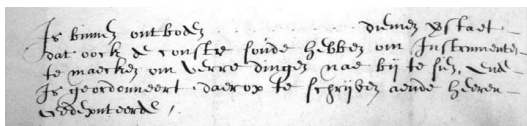 Is binnen ontboden diemen verstaet
dat oock de conste soude hebben om Instrumenten
te maecken om verre dingen nae bij te sien, ende
Is geordonneert daerop te schrijven aende heeren
Gedeputeerde,